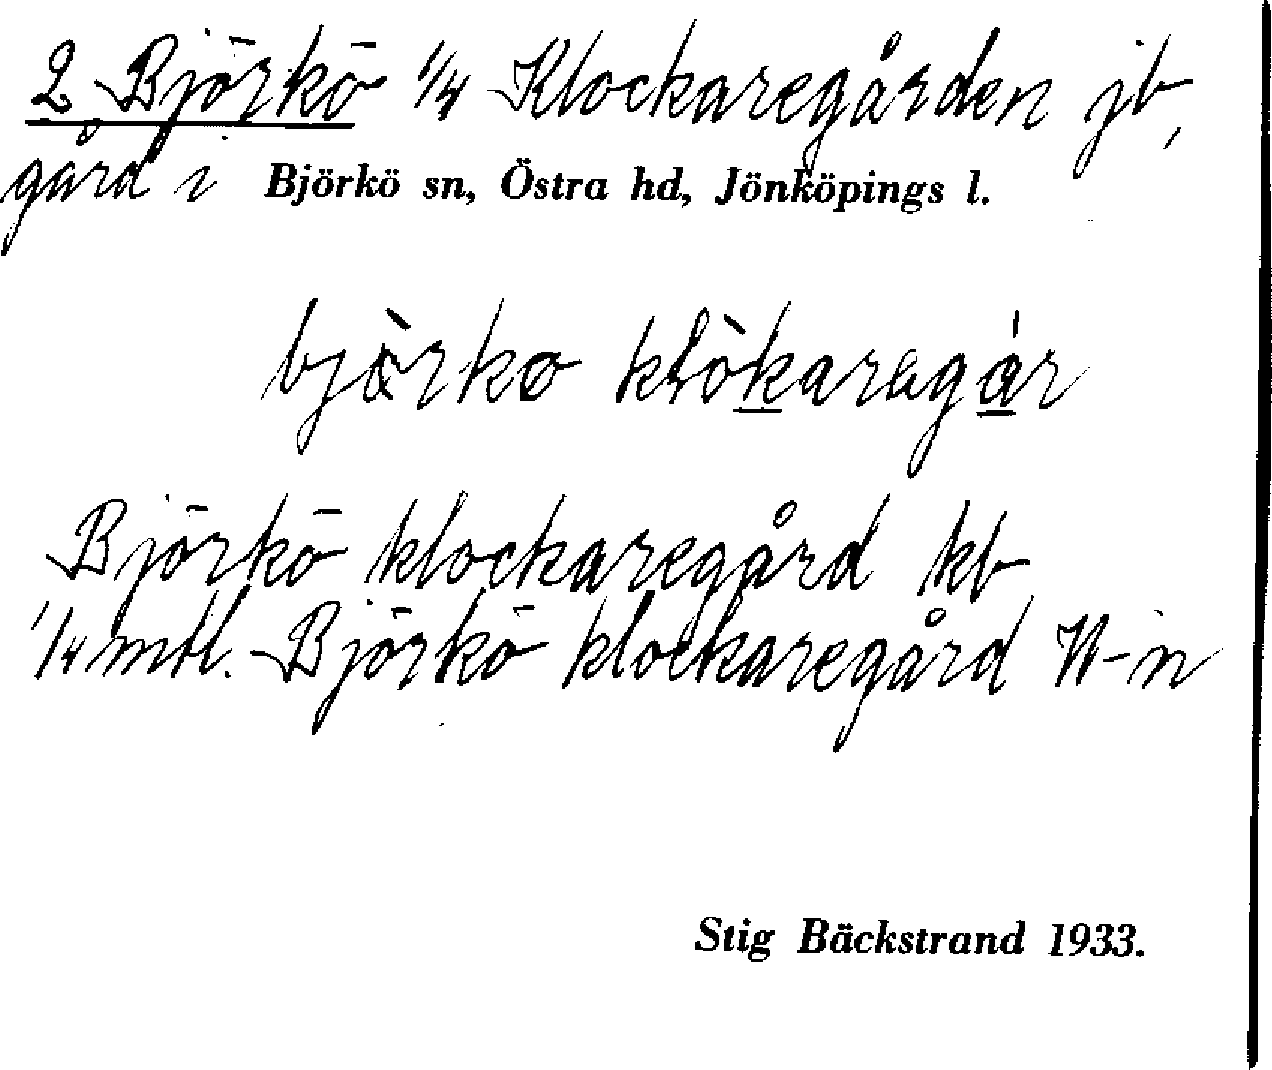 2 Björkö 1/4 Klockaregården jb,
gård i Björkö sn, Östra hd, Jönköpings l.
bjɑ̀rkɷ klòk̲aragǻ̲r
Björkö klockaregård kb
1/4 mtl. Björkö klockaregård W-n
Stig Bäckstrand 1933.